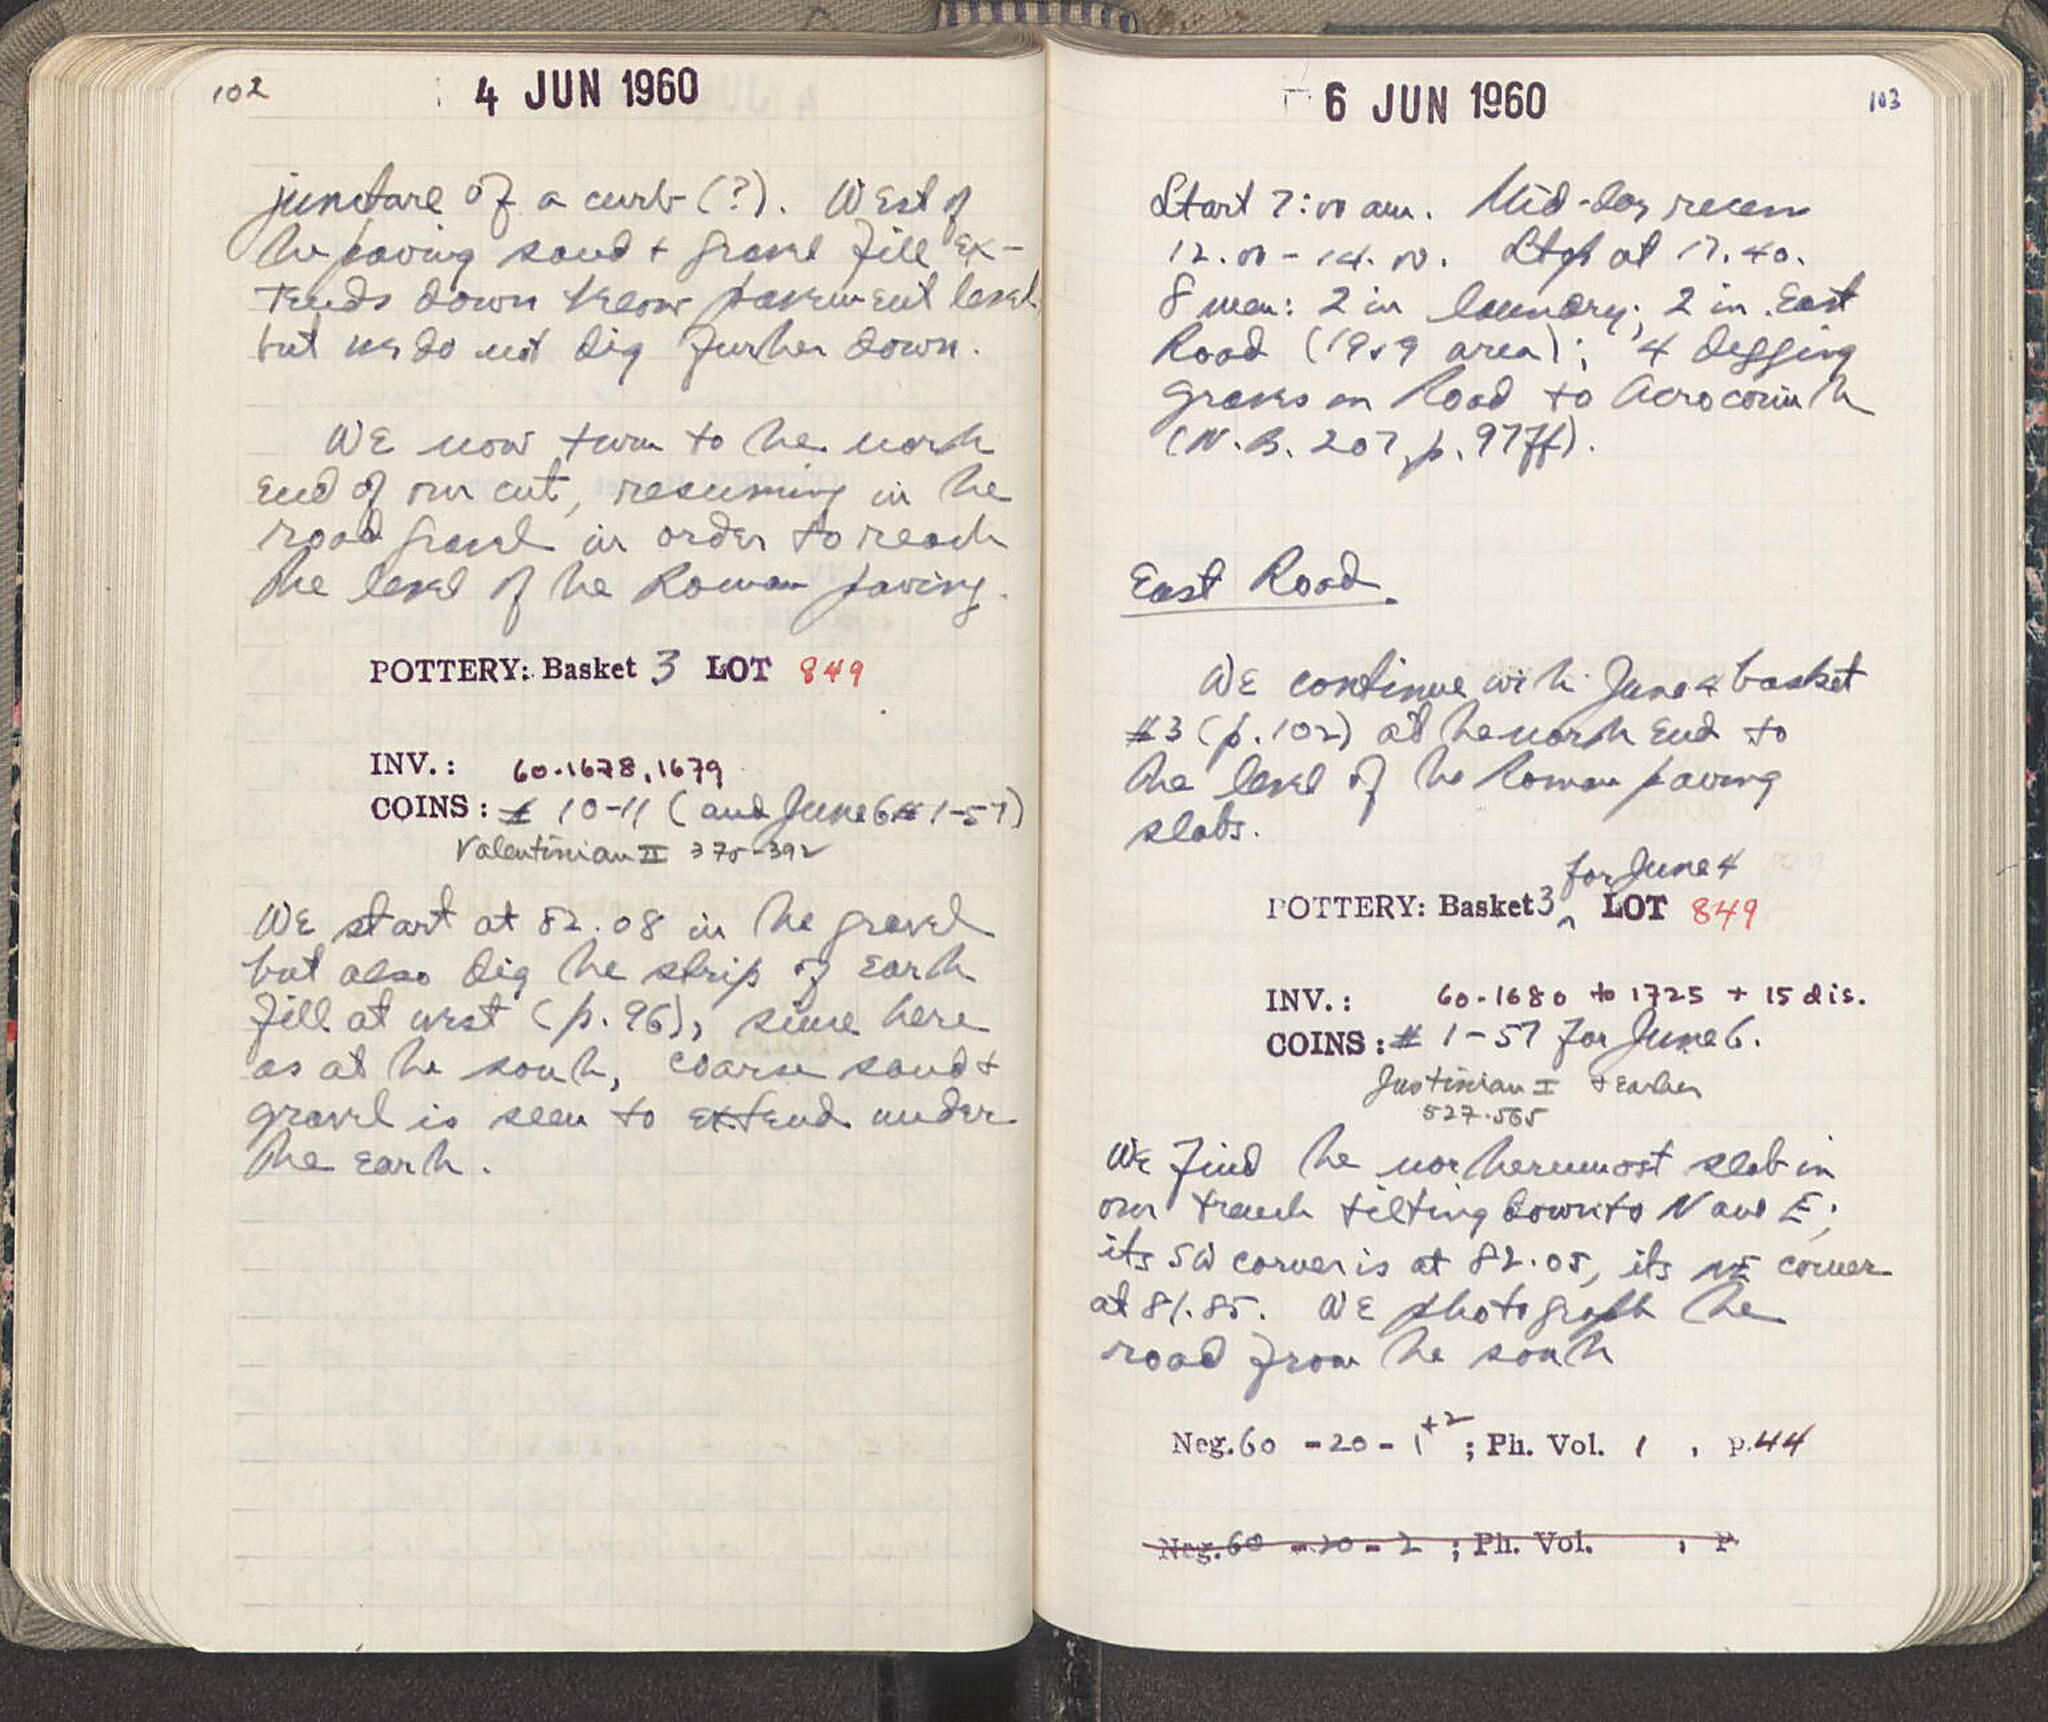 102
4 JUN 1960
juncture of a curb (?). West of
the paving sand + gravel fill ex-
tends down below pavement level
but we do not dig further down.
We now turn to the north
end of our cut, resuming in the
road gravel in order to reach
the level of the Roman paving.
POTTERY: Basket 3 LOT 849
INV.: 60-1678, 1679
COINS: # 10-11 (and June 6 # 1-57)
Valentinian II 375-392
We start at 82.08 in the gravel
but also dig the strip of earth
fill at west (p. 96), since here
as at the south, coarse sand +
gravel is seen to extend under
the earth.
6 JUN 1960
103
Start 7:00 am. Mid-day recess
12.00 - 14.00. Stop at 17.40.
8 men: 2 in laundry; 2 in East
Road (1959 area); 4 digging
graves on Road to Acrocorinth
(N.B. 207, p. 97ff).
East Road.
We continue with June 4 basket
#3 (p. 102) at the north end to
the level of the Roman paving
slabs.
for June 4
POTTERY: Basket 3 ^ LOT 849
INV.: 60-1680 to 1725 + 15 dis.
COINS: # 1-57 for June 6.
Justinian I + earlier
527-565
We find the northernmost slab in
our trench tilting down to N and E;
its SW corner is at 82.05, its NE corner
at 81.85. We photograph the
road from the south
Neg. 60 - 20 - 1 +2 ; Ph. Vol. 1 , p. 44
Neg. 60 - 20 - 2 ; Ph. Vol. , P.